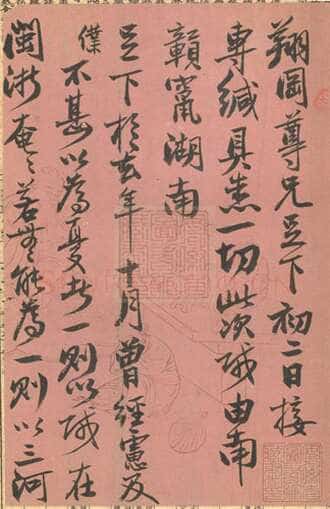 翔岡尊兄足下初二日接
專緘具悉一切此次賊由南
贛竄湖南
足下於去年十月曾經慮及
僕不甚以為憂者一則以賊在
閩浙奄々若無能為一則以三河